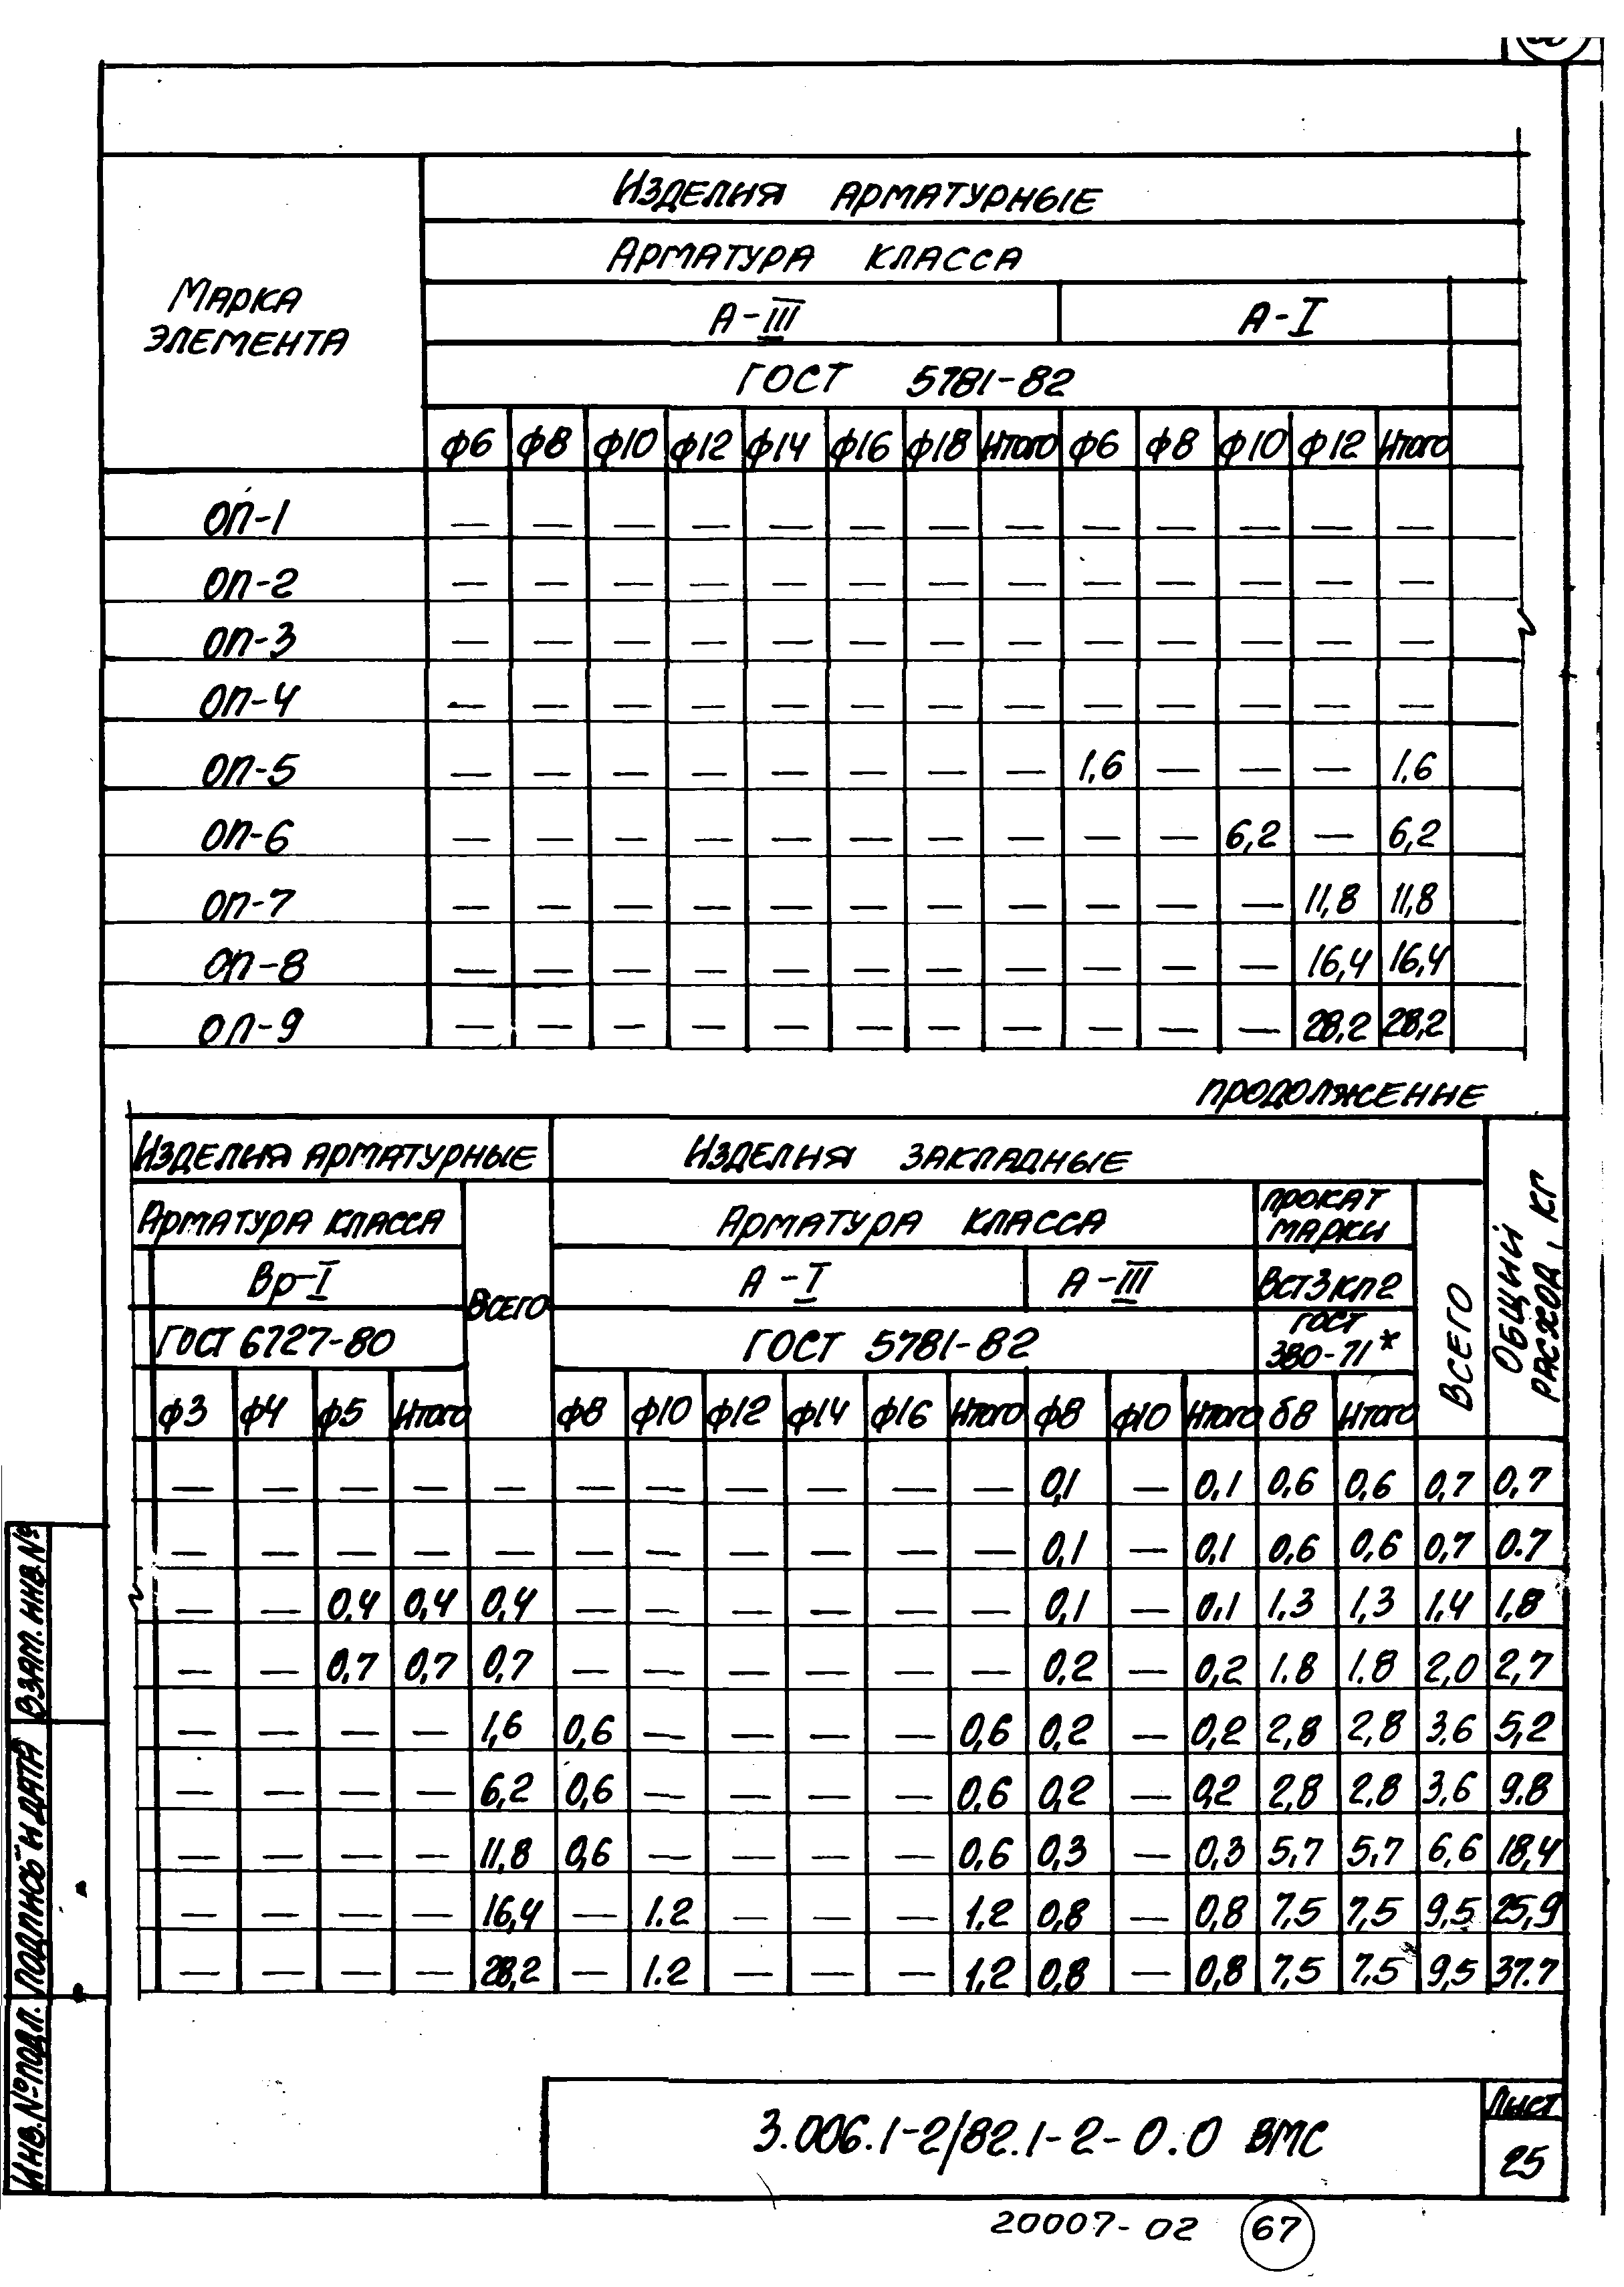 Марка элемента
Изделия арматурные
Арматура класса
А-III А-I
ГОСТ 5781-82
ф6 ф8 ф10 ф12 ф14 ф16 ф18 Итого ф6 ф8 ф10 ф12 Итого
ОП-1 — — — — — — — — — — — — —
ОП-2 — — — — — — — — — — — — —
ОП-3 — — — — — — — — — — — — —
ОП-4 — — — — — — — — — — — — —
ОП-5 — — — — — — — — 1,6 — — — 1,6
ОП-6 — — — — — — — — — — 6,2 — 6,2
ОП-7 — — — — — — — — — — — 11,8 11,8
ОП-8 — — — — — — — — — — — 16,4 16,4
ОП-9 — — — — — — — — — — — 28,2 28,2
продолжение
Изделия арматурные Изделия закладные
Арматура класса Всего Арматура класса прокат марки Всего Общий расход, кг
Вр-I А-I А-III ВСт3кп2
ГОСТ 6727-80 ГОСТ 5781-82 ГОСТ 380-71*
ф3 ф4 ф5 Итого ф8 ф10 ф12 ф14 ф16 Итого ф8 ф10 Итого δ8 Итого
— — — — — — — — — — — 0,1 — 0,1 0,6 0,6 0,7 0,7
— — — — — — — — — — — 0,1 — 0,1 0,6 0,6 0,7 0.7
— — 0,4 0,4 0,4 — — — — — — 0,1 — 0,1 1.3 1,3 1,4 1,8
— — 0,7 0,7 0,7 — — — — — — 0,2 — 0,2 1.8 1.8 2,0 2,7
— — — — 1,6 0,6 — — — — 0,6 0,2 — 0,2 2,8 2,8 3,6 5,2
— — — — 6,2 0,6 — — — — 0,6 0,2 — 0,2 2,8 2,8 3,6 9.8
— — — — 11,8 0,6 — — — — 0,6 0,3 — 0,3 5,7 5,7 6,6 18,4
— — — — 16,4 — 1.2 — — — 1,2 0,8 — 0,8 7,5 7,5 9,5 25,9
— — — — 28,2 — 1.2 — — — 1,2 0,8 — 0,8 7,5 7,5 9,5 37.7
Инв.№подл. Подпись и дата Взам.инв.№
3.006.1-2/82.1-2-0.0 ВМС
Лист
25
20007-02 67